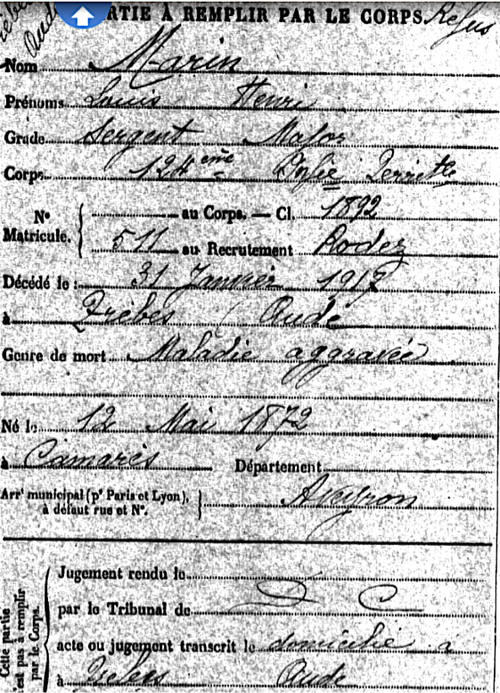 PARTIE À REMPLIR PAR LE CORPS. Refus
Nom Marin
Prénoms Louis Henri
Grade Sergent Major
Corps 124 eme Infie Territle
No Matricule. au Corps. — Cl. 1892
511 au Recrutement Rodez
Décédé le : 31 Janvier 1917
à Trèbes (Aude
Genre de mort Maladie aggravée
Né le 12 Mai 1872
à Camarès Département
Arrt municipal (pr Paris et Lyon), à défaut rue et No. Aveyron
Cette partie n'est pas à remplir par le Corps.
Jugement rendu le
par le Tribunal de D C
acte ou jugement transcrit le domicilié a
à Trèbes Aude